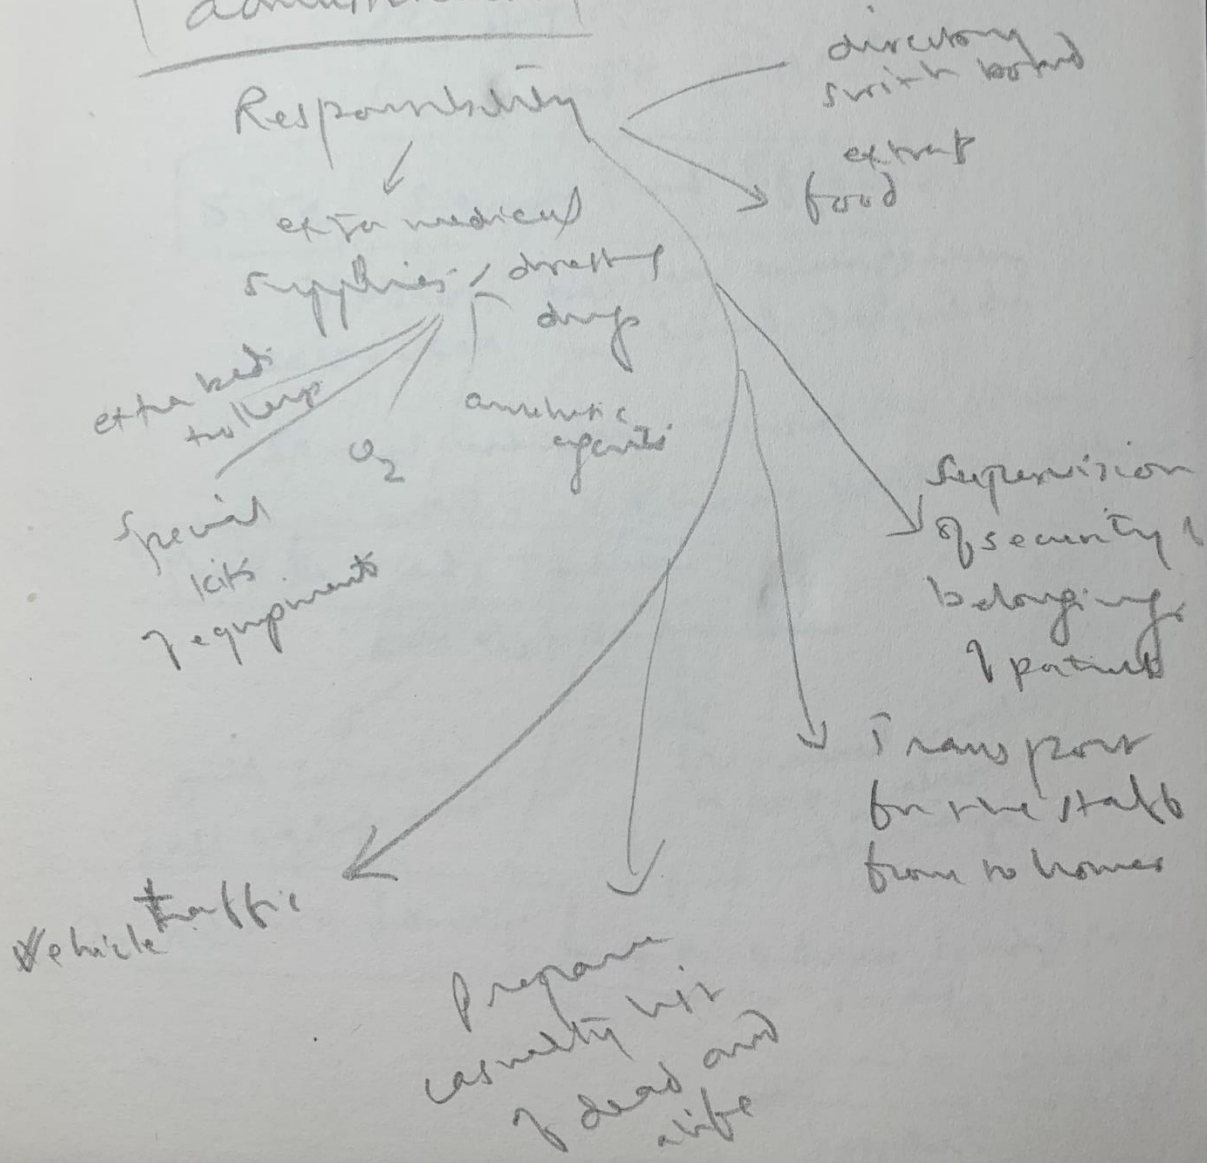 Responsibility
directory
switch board
extra
food
extra medical
supplies / dressing
drugs
extra bed
trolleys
O2
anesthetic
agents
Special
kits
of equipments
Supervision
of security &
belongings
of patients
Transport
for the staff
from to homes
vehicle traffic
Prepare
casualty list
of dead and
alife